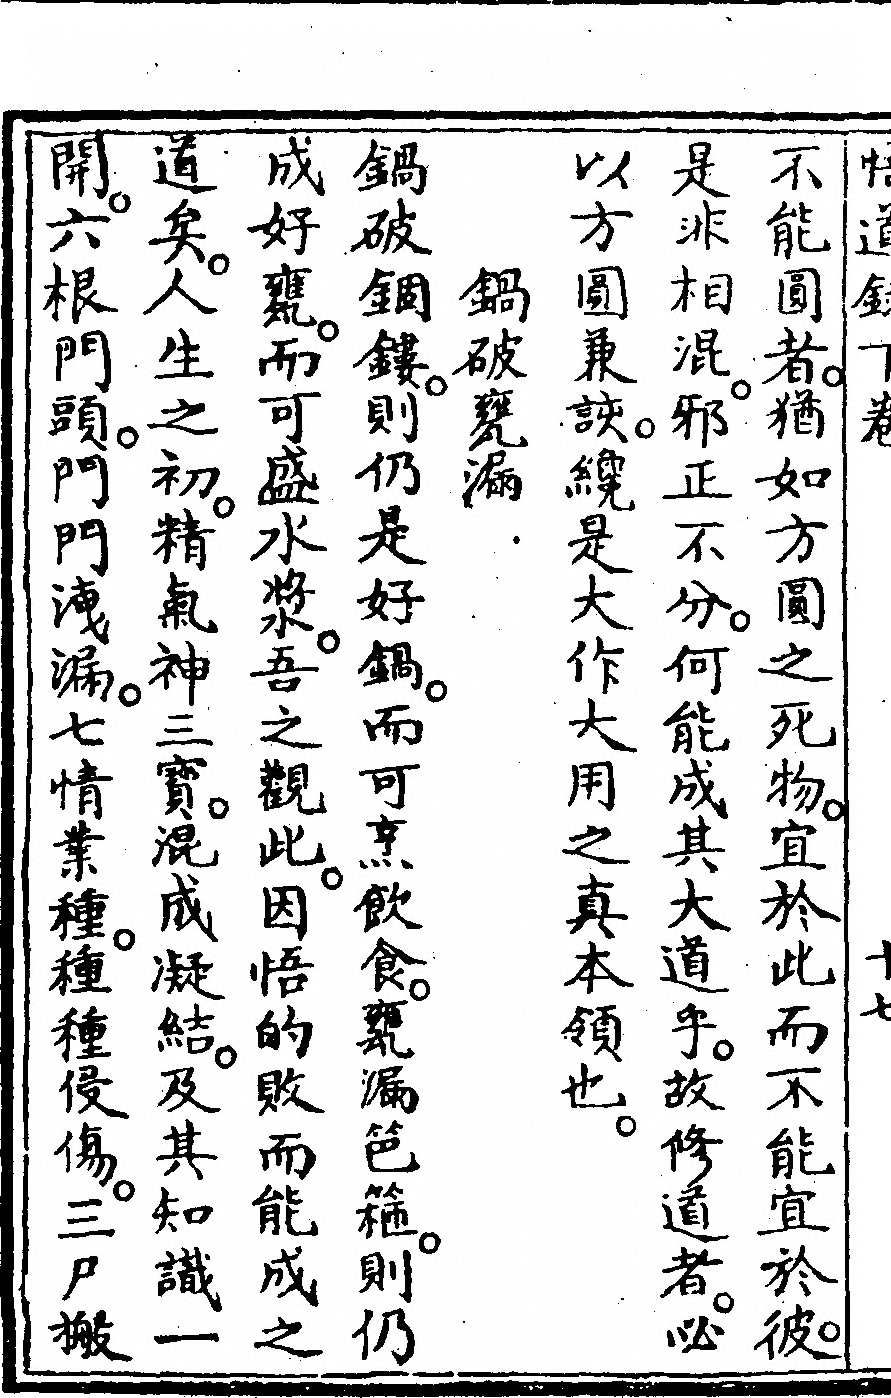 悟道錄下卷 十七
不能圓者。猶如方圓之死物。宜於此而不能宜於彼。
是非相混。邪正不分。何能成其大道乎。故修道者。必
以方圓兼詼。纔是大作大用之真本領也。
鍋破甕漏
鍋破錮鏤。則仍是好鍋。而可烹飲食。甕漏笆箍。則仍
成好甕。而可盛水漿。吾之觀此。因悟的敗而能成之
道矣。人生之初。精氣神三寶。混成凝結。及其知識一
開。六根門頭。門門洩漏。七情業種。種種侵傷。三尸搬